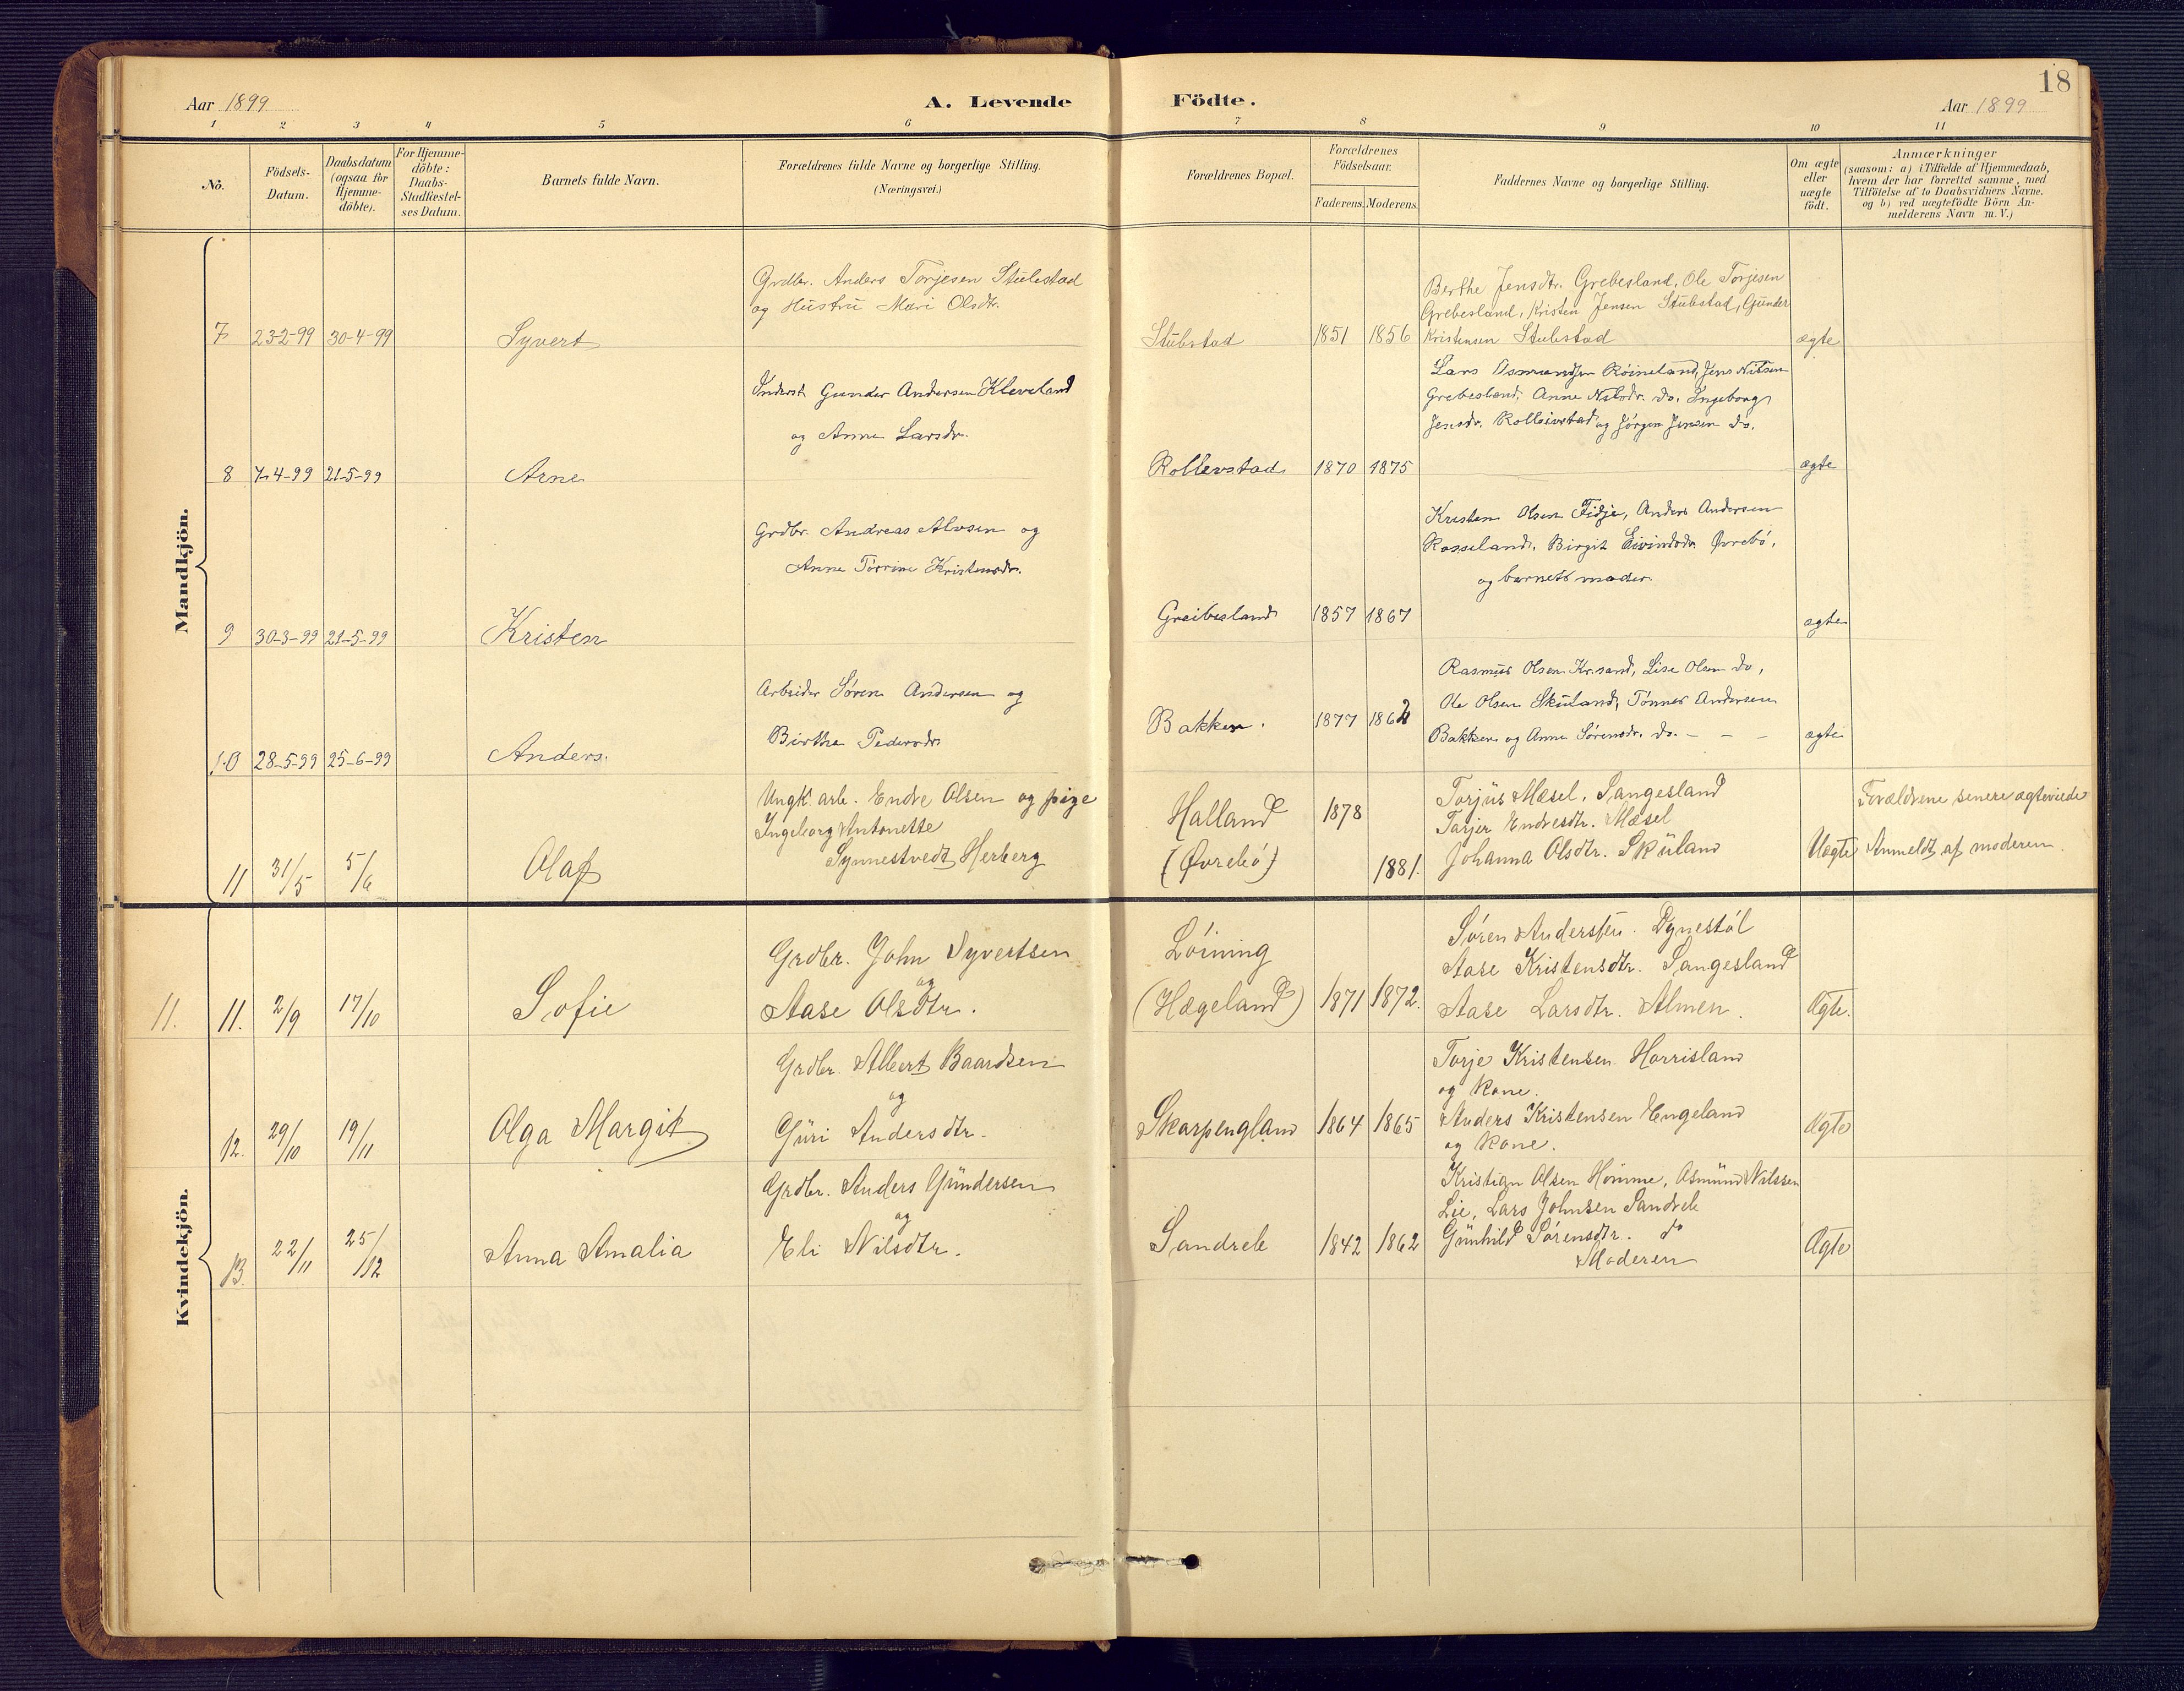 18
Aar 1899
A. Levende Födte.
Aar 1899
1 2 3 4 5 6 7 8 9 10 11
No.
Födsels-
Datum.
Daabsdatum
(ogsaa for
Hjemme-
döbte).
For Hjemme-
döbte:
Daabs-
Stadfæstel-
ses Datum.
Barnets fulde Navn.
Forældrenes fulde Navne og borgerlige Stilling.
(Næringsvei.)
Forældrenes Bopæl.
Forældrenes
Födselsaar.
Faderens. Moderens.
Faddernes Navne og borgerlige Stilling.
Om ægte
eller
uægte
födt.
Anmærkninger
(saasom: a) i Tilfælde af Hjemmedaab,
hvem der har forrettet samme, med
Tilföielse af to Daabsvidners Navne.
og b) ved uægtefödte Börn An-
melderens Navn m. V.)
Mandkjön.
Grdbr. Anders Torjesen Stubstad
og Hustru Mari Olsdtr.
Berthe Jensdtr. Grebesland, Ole Torjesen
Grebesland, Kristen Jensen Stubstad, Gunder
Kristensen Stubstad
7 23-2-99 30-4-99 Syvert Stubstad 1851 1856 ægte
Inderst Gunder Andersen Kleveland
og Anne Larsdr.
Lars Osmundsen Röineland, Jens Nilsen
Grebesland, Anne Nilsdr. do. Ingeborg
Jensdr. Rolleivstad og Jörgen Jensen do.
8 7-4-99 21-5-99 Arne Rollevstad 1870 1875 ægte
Grdbr. Andreas Alvsen og
Anne Torrine Kristensdr.
Kristen Olsen Fidje, Anders Andersen
Rosseland, Birgit Eivindsdr. Øvrebö,
og barnets moder.
9 30-3-99 21-5-99 Kristen Greibesland 1857 1867 ægte
Arbeider Sören Andersen og
Birthe Pedersdr.
Rasmus Olsen Kr.sand, Lise Olsen do,
Ole Olsen Skuland, Tönnes Andersen
Bakken og Anne Sörensdr. do. - - -
10 28-5-99 25-6-99 Anders. Bakken. 1877 1862 ægte
Ungk. arb. Endre Olsen og pige
Ingeborg Antonette
Synnestvedt Herberg
Halland
(Øvrebö)
1878
1881.
Torjus Mæsel, Sangesland
Tarjer Endresdtr. Mæsel
Johanna Olsdtr. Skuland
11 31/5 5/6 Olaf Uægte
Forældrene senere ægteviede
Anmeldt af moderen.
Kvindekjön.
Grdbr. John Syvertsen
og
Aase Olsdtr.
Löining
(Hægeland)
Sören Andersen. Dynestöl
Aase Kristensdtr. Sangesland
Aase Larsdtr. Almen.
11. 11. 2/9 17/10 Sofie 1871 1872. Ægte.
Grdbr. Albert Baardsen
og
Guri Andersdtr.
Torje Kristensen Horrisland
og Kone.
Anders Kristensen Engeland
og Kone.
12. 29/10 19/11 Olga Margit Skarpengland 1864 1865 Ægte
Grdbr. Anders Gundersen
og
Eli Nilsdtr.
Kristian Olsen Homme, Osmund Nilssen
Lie, Lars Johnsen Sandrek
Gunhild Sörensdtr. do
Moderen
13. 22/11 25/12 Anna Amalia Sandrek 1842 1862 Ægte